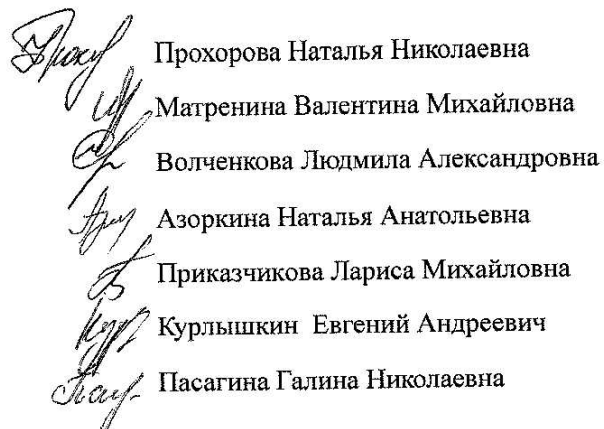 Прохорова Наталья Николаевна
Матренина Валентина Михайловна
Волченкова Людмила Александровна
Азоркина Наталья Анатольевна
Приказчикова Лариса Михайловна
Курлышкин Евгений Андреевич
Пасагина Галина Николаевна